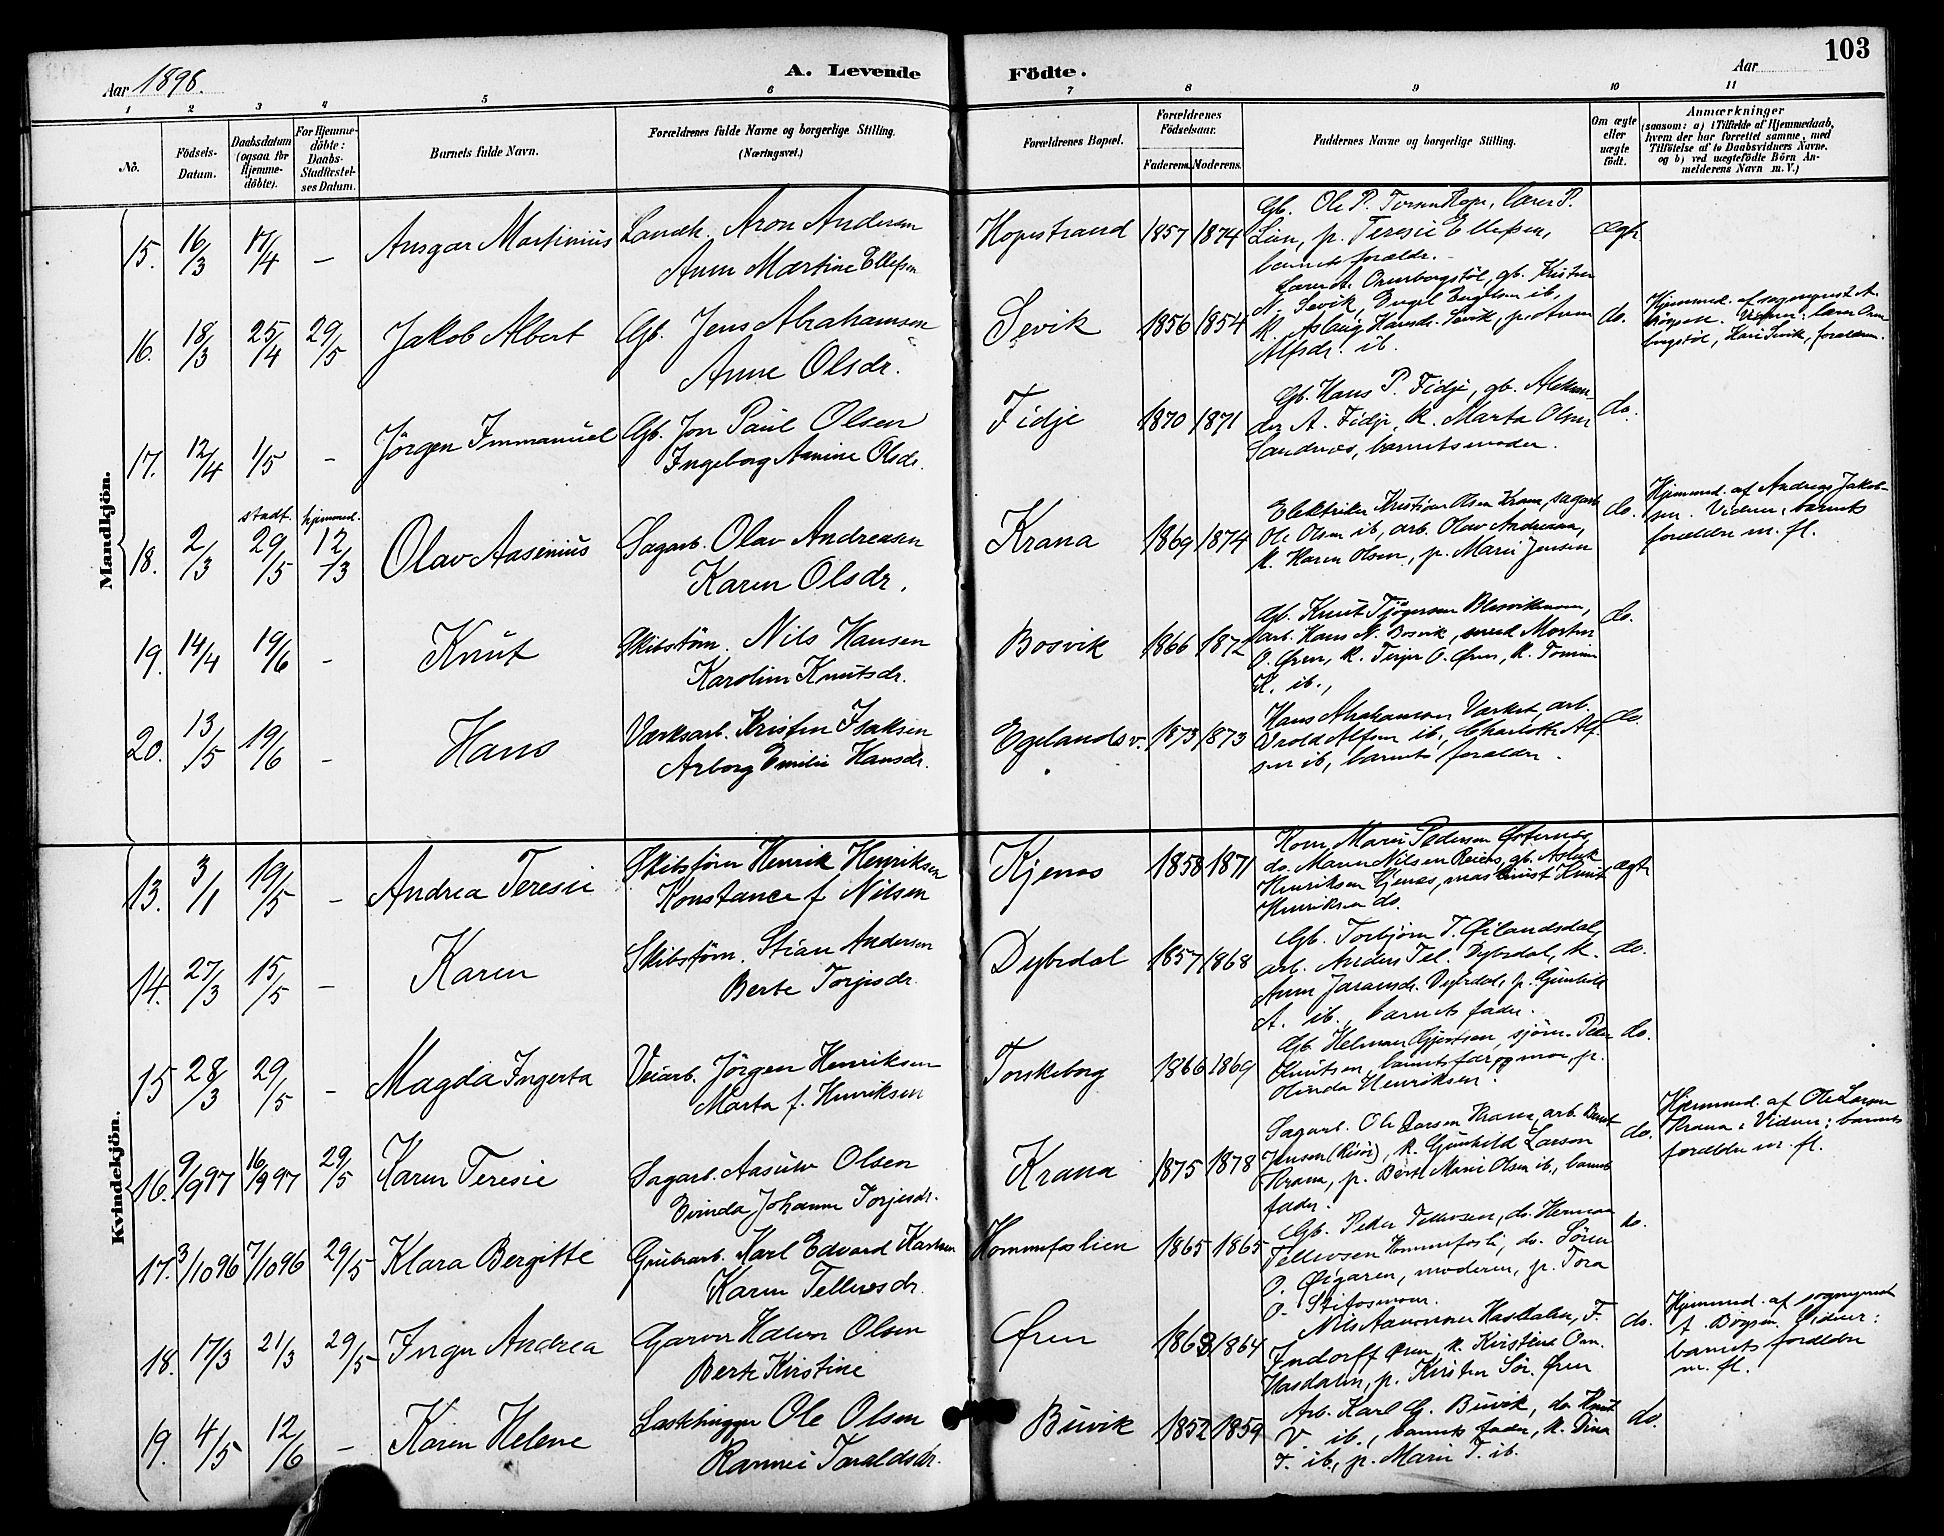 103
Aar 1898.
A. Levende Födte.
Aar
1 2 3 4 5 6 7 8 9 10 11
No.
Födsels-Datum.
Daabsdatum (ogsaa for Hjemme-döbte).
For Hjemme-döbte: Daabs-Stadfæstel-ses Datum.
Barnets fulde Navn.
Forældrenes fulde Navne og borgerlige Stilling.
(Næringsvei.)
Forældrenes Bopæl.
Forældrenes Födselsaar.
Faderens. Moderens.
Faddernes Navne og borgerlige Stilling.
Om ægte eller uægte födt.
Anmærkninger
(saasom: a) i Tilfælde af Hjemmedaab, hvem der har forrettet samme, med Tilföielse af to Daabsvidners Navne. og b) ved uægtefödte Börn An-melderens Navn m. V.)
Mandkjön.
15. 16/3 17/4 – Ansgar Martinius
Landh. Aron Andersen
Anne Martine Ellefsen
Hopestrand 1857 1874
Lien, p. Teresie Ellefsen,
barnets forældr.
ægte
16. 18/3 25/4 29/5 Jakob Albert
Gb. Jens Abrahamsen
Anne Olsdr.
Sevik 1856 1854
Alfsdr. ib.
do.
17. 12/4 1/5 – Jörgen Immanuel
Gb. Jon Paul Olsen
Ingeborg Annine Olsdr.
Fidje 1870 1871
Gb. Hans P. Fidje, gb. Aleksan-
der A. Fidje, k. Marta Olsen
Sandnes, barnets moder.
do.
18. 2/3 stadf. 29/5 hjemmed. 12/3 Olav Aasenius
Sagarb. Olav Andreasen
Karen Olsdr.
Krana 1869 1874
Elektriker Kristian Olsen Krana, sagarb.
Ole Olsen ib, arb. Olav Andreasen,
k. Karen Olsen, p. Marie Jensen
do.
Hjemmed. af Andreas Jakob-
sen. Vidner: barnets
forældre m. fl.
19. 14/4 19/6 – Knut
Skibstöm. Nils Hansen
Karoline Knutsdr.
Bosvik 1866 1872
arb. Hans N. Bosvik,
K. ib.,
do.
20. 13/5 19/6 – Hans
Værksarb. Kristen Isaksen
Arborg Emilie Hansdr.
Egelands v. 1873 1873
Hans Abrahamsen Værket, arb.
Vrold Alfsen ib, Charlotte Alf-
sen ib, barnets forældre.
do.
Kvindekjön.
13. 3/1 19/5 – Andrea Teresie
Skibstöm Henrik Henriksen
Konstance f. Nilsen
Kjenes 1858 1871
Henriksen do.
ægte
14. 27/3 15/5 – Karen
Skibstöm. Stian Andersen
Berte Torjesdr.
Dybdal 1857 1868
Gb. Torbjörn T. Öilandsdal,
arb. Anders Tel. Dybdal, k.
A. ib. barnets fader.
do.
15 28/3 29/5 – Magda Ingerta
Veiarb. Jörgen Henriksen
Marta f. Henriksen
Torskeberg 1866 1869
Knutsen, barnets far og mor, p.
Olinda Henriksen.
do.
16. 9/9 97 16/9 97 29/5 Karen Teresie
Sagarb. Aasulv Olsen
Evinda Johanne Torjesdr.
Krana 1875 1878
Sagarb. Ole Larsen Krana, arb. Bernt
Jensen (Risör), k. Gunhild Larsen
Krana, p. Berte Marie Olsen ib., barnets
fader.
do.
Hjemmed. af Ole Larsen
Krana. Vidner: barnets
forældre m. fl.
17. 3/10 96 7/10 96 29/5 Klara Bergitte
Grubarb. Karl Edvard Karlsen
Karen Tellevsdr.
Hommefoslien 1865 1865
Gb. Peder Tellevsen, do. Herman
Tellevsen Hommefosli, do. Sören
O. Öigaren, moderen, p. Tora
O. Stifosmoen.
do.
18. 17/3 21/3 29/5 Inga Andrea
Garver Halvor Olsen
Berte Kirstine
Øren 1863 1864
Indorff Øren, k. Kirstine
Hasdalen, p. Kirsten Sör. Øren
do.
Hjemmed. af sognepræst
A. Börgsen. Vidner:
barnets forældre
m. fl.
19. 4/5 12/6 – Karen Helene
Ole Olsen
Ranvei Taraldsdr.
Buvik 1852 1859
Arb. Karl G. Buvik, do Knut
V. ib., barnets fader, k. Dina
T. ib., p. Marie T. ib.
do.